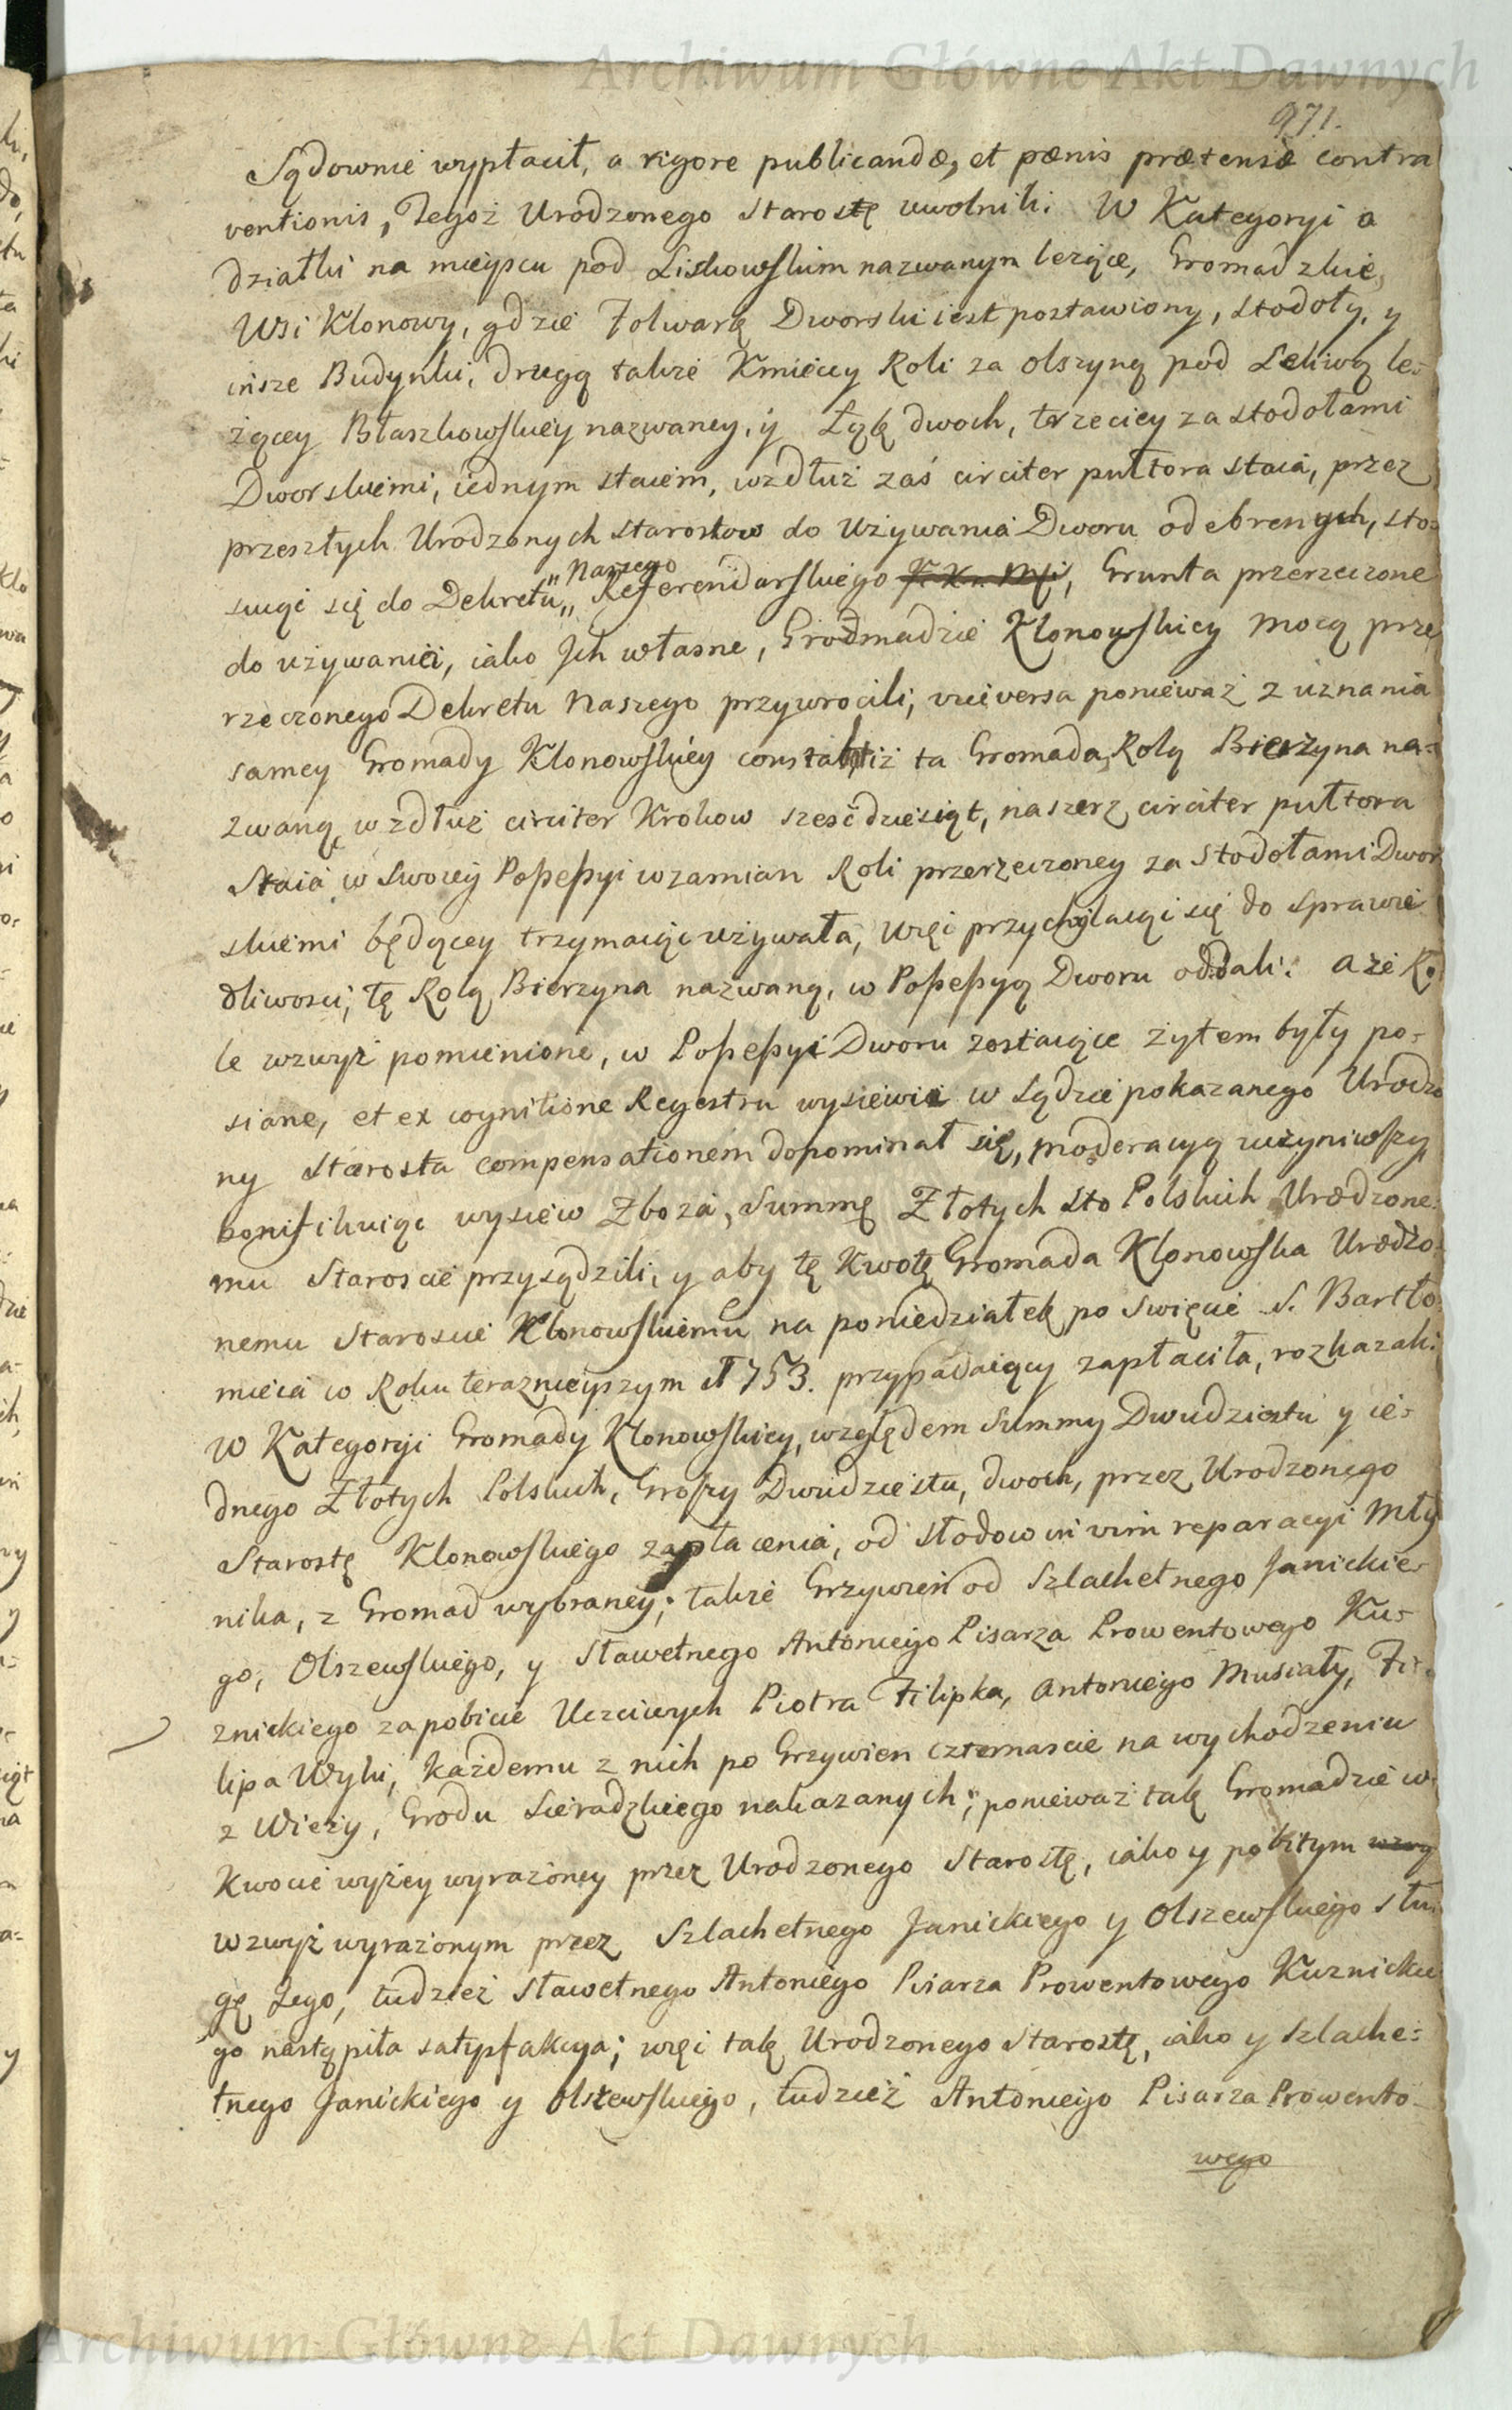 Archiwum Główne Akt Dawnych
971.
Sądownie wypłacił, a rigore publicandæ, et pænis prætensæ contra
ventionis, Tegoż Urodzonego Starostę uwolnili. W Kategoryi o
działki na mieyscu pod Liskowskim nazwanym leżące, Gromadzkie
Wsi Klonowy, gdzie Folwark Dworski iest postawiony, stodoły, y
insze Budynki, drugą także Kmiecey Roli za Olszyną pod Lekiwą le-
żącey Błaszkowskiey nazwaney, y Łąk dwoch, trzeciey za stodołami
Dworskiemi, iednym staiem, wzdłuż zaś circiter pułtora staia, przez
przeszłych Urodzonych Starostow do Używania Dworu odebrenych, sto-
suiąc się do Dekretu Naszego Referendarskiego, Grunta przerzeczone
do używania, iako Jch własne, Gromadzie Klonowskiey mocą prze
rzeczonego Dekretu Naszego przywrocili; viceversa ponieważ z uznania
samey Gromady Klonowskiey constat, iż ta Gromada, Rolą Bierzyna na-
zwaną, wzdłuż circiter Krokow sześćdziesiąt, naszerz circiter pułtora
Staia w Swoiey Possessyi wzamian Roli przerzeczoney za Stodołami Dwor
skiemi będącey trzymaiąc używała, więc przychylaiąc się do Sprawie
dliwosci, tę Rolą Bierzyna nazwaną, w Possessyą Dworu oddali: a że Ro
le wzwyż pomienione, w Possessyi Dworu zostaiące żytem były po-
siane, et ex cognitione Regestru wysiewu w Sądzie pokazanego Urodzo
ny Starosta compensationem dopominał się, moderacyą uczyniwszy,
bonifikuiąc wysiew Zboża, Summę Złotych Sto Polskich Urodzone-
mu Staroscie przysądzili, y aby tę Kwotę Gromada Klonowska Urodzo-
nemu Staroscie Klonowskiemu na poniedziałek po Swięcie S. Bartło-
mieia w Roku teraznieyszym 1753. przypadaiący zapłaciła, rozkazali.
W Kategoryi Gromady Klonowskiey, względem Summy Dwudziestu y ie-
dnego Złotych Polskich, Groszy Dwudziestu, dwoch, przez Urodzonego
Starostę Klonowskiego zapłacenia, od słodow in vim reparacyi Mły
nika, z Gromad wybraney; także Grzywien od Szlachetnego Janickie-
go, Olszewskiego, y Sławetnego Antoniego Pisarza Prowentowego Ku-
znickiego za pobicie Uczciwych Piotra Filipka, Antoniego Musiały, Fi-
lipa Wylu, każdemu z nich po Grzywien czternascie na wychodzeniu
z Wieży, Grodu Sieradzkiego nakazanych; ponieważ tak Gromadzie w
Kwocie wyżey wyrażoney przez Urodzonego Starostę, iako y pobitym
wzwyż wyrażonym przez Szlachetnego Janickiego y Olszewskiego słu-
gę Jego, tudzież Sławetnego Antoniego Pisarza Prowentowego Kuznickie
go nastąpiła satysfakcya; więc tak Urodzonego Starostę, iako y Szlache-
tnego Janickiego y Olszewskiego, tudzież Antoniego Pisarza Prowento-
wego
Archiwum Główne Akt Dawnych